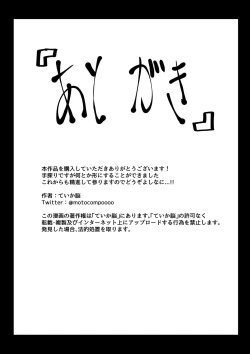 『あとがき』
本作品を購入していただきありがとうございます！
手探りですが何とか形にすることができました
これからも精進して参りますのでどうぞよしなに...!!!
作者：ていか脳
Twitter：@motocompoooo
この漫画の著作権は「ていか脳」にあります。「ていか脳」の許可なく
転載・複製及びインターネット上にアップロードする行為を禁止します。
発見した場合、法的処置を取ります。